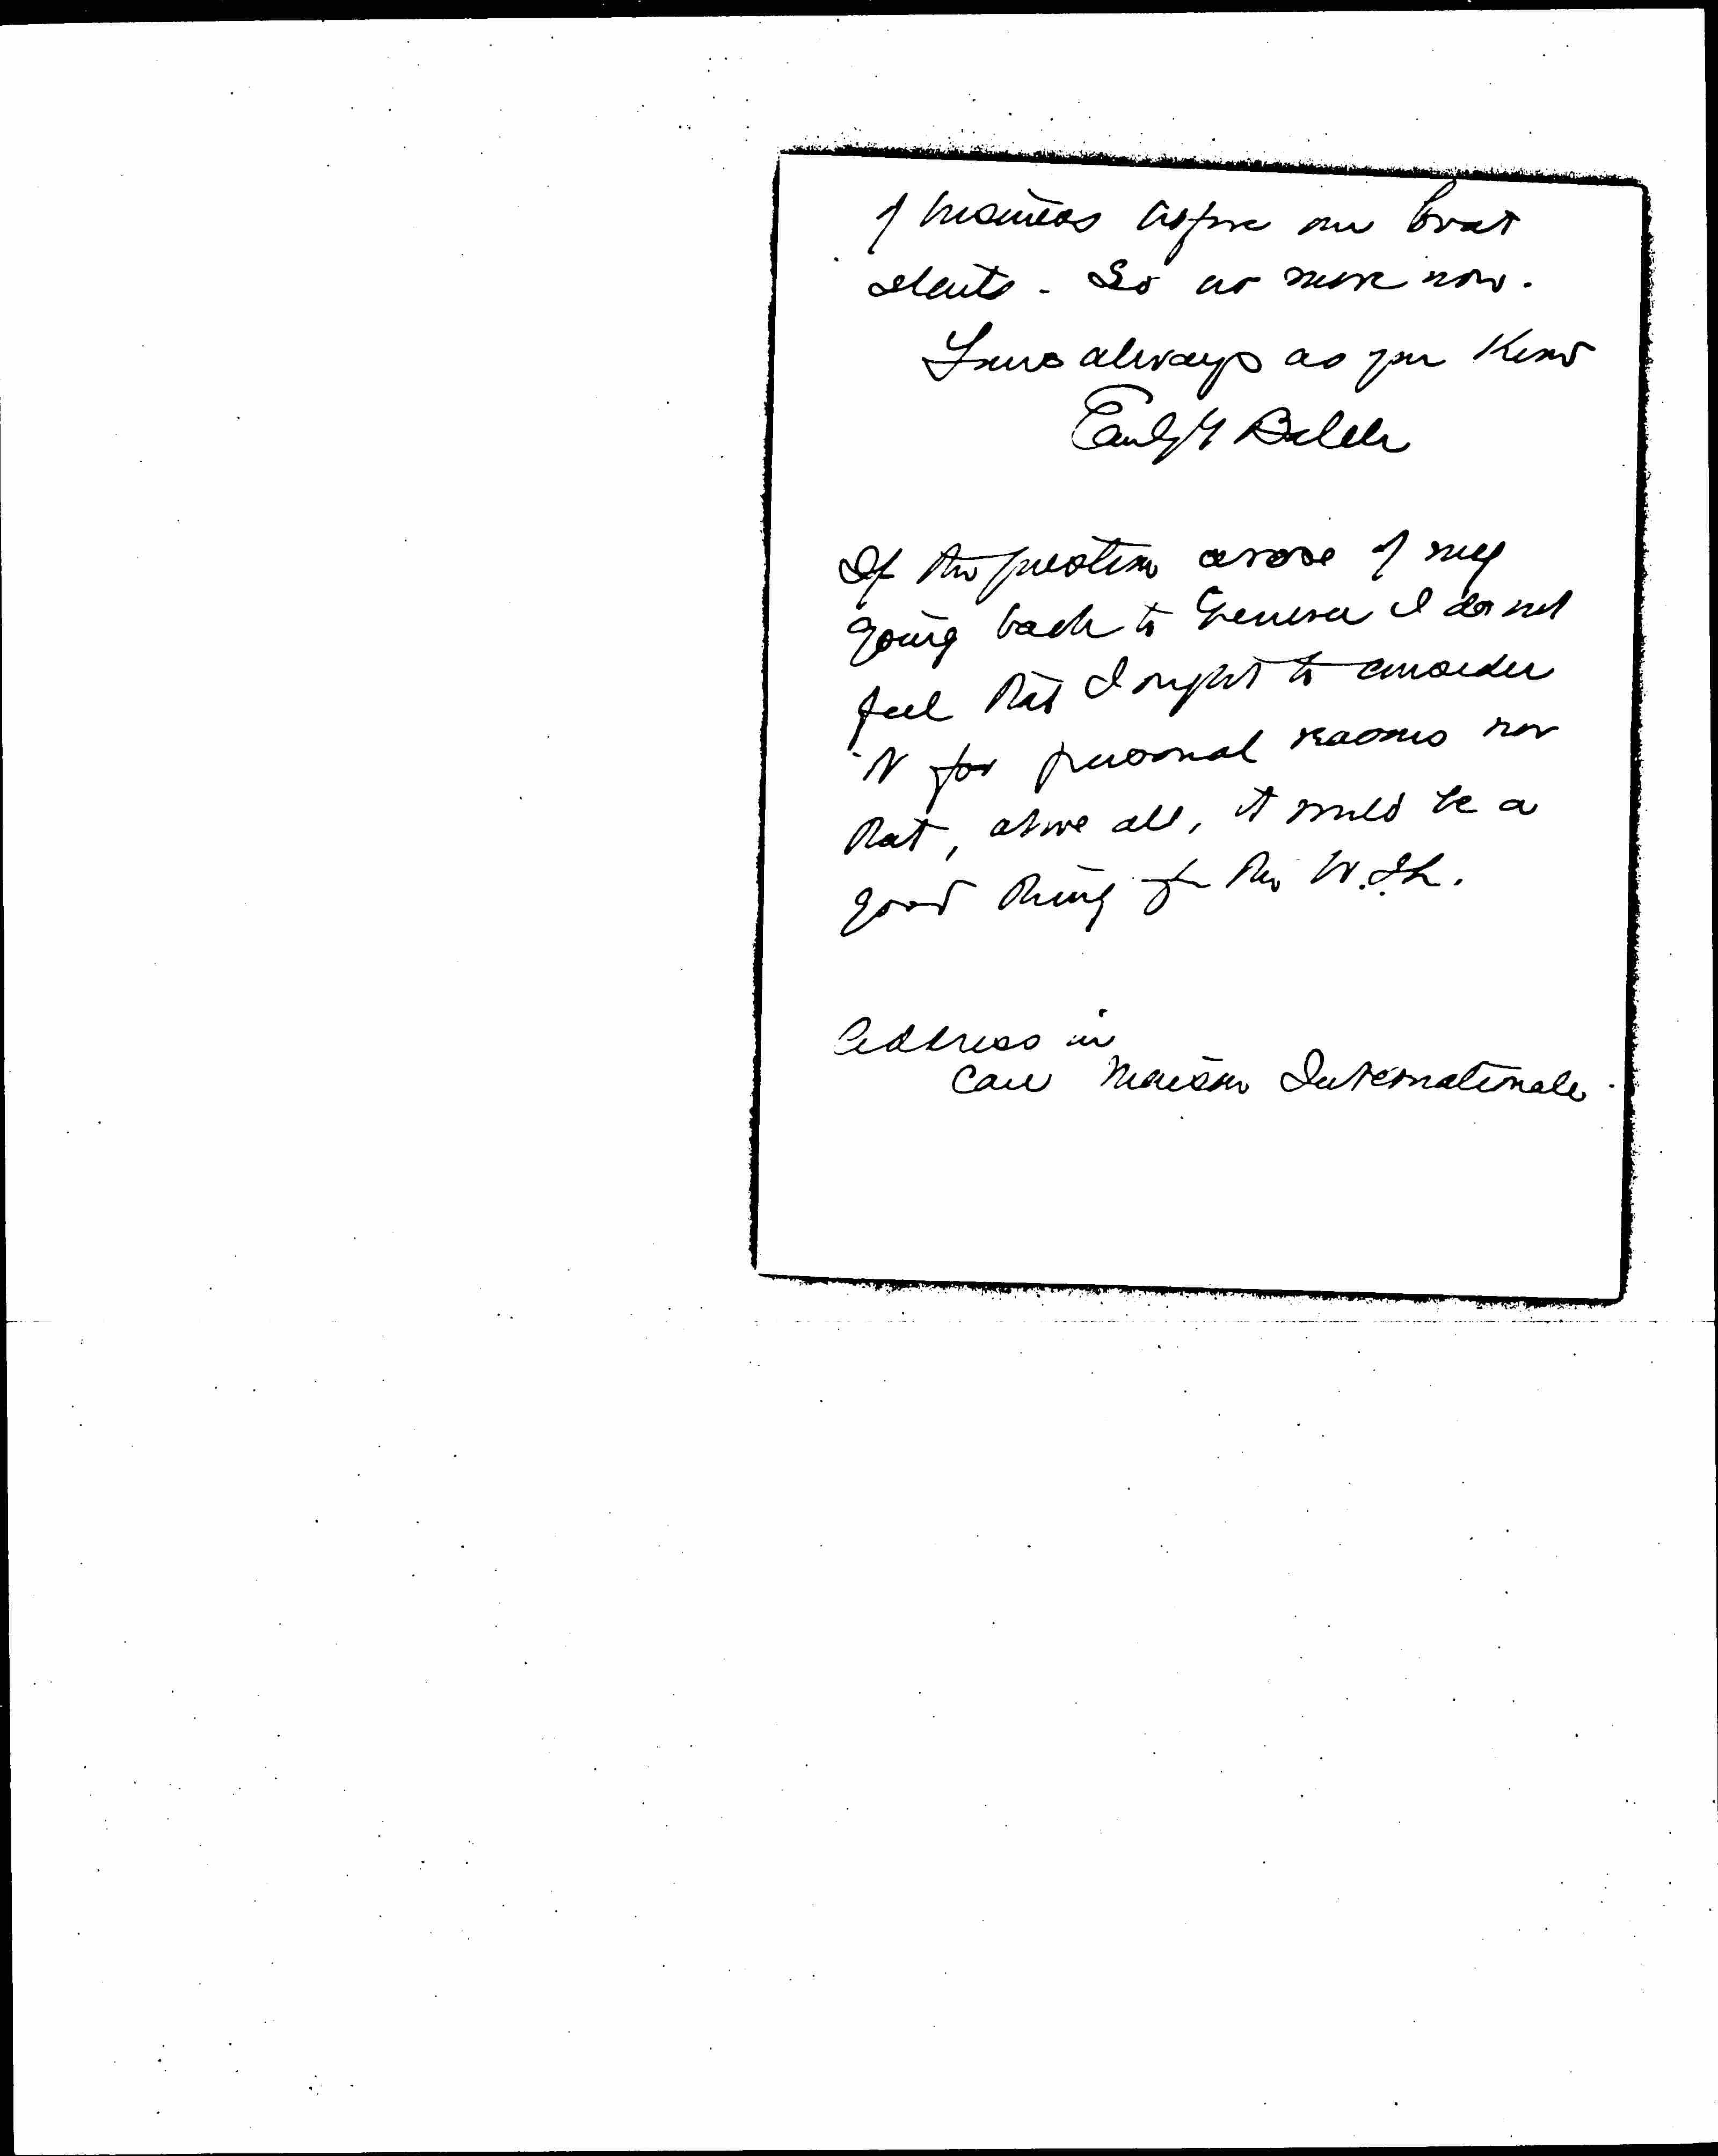 of business before our boat
starts. So no more now.
Yours always as you know
Emily G Balch
If the question arose of my
going back to Geneva I do not
feel that I ought to consider
it for personal reasons nor
that, above all, it would be a
good thing for the W.I.L.
Address in
care Maison Internationale